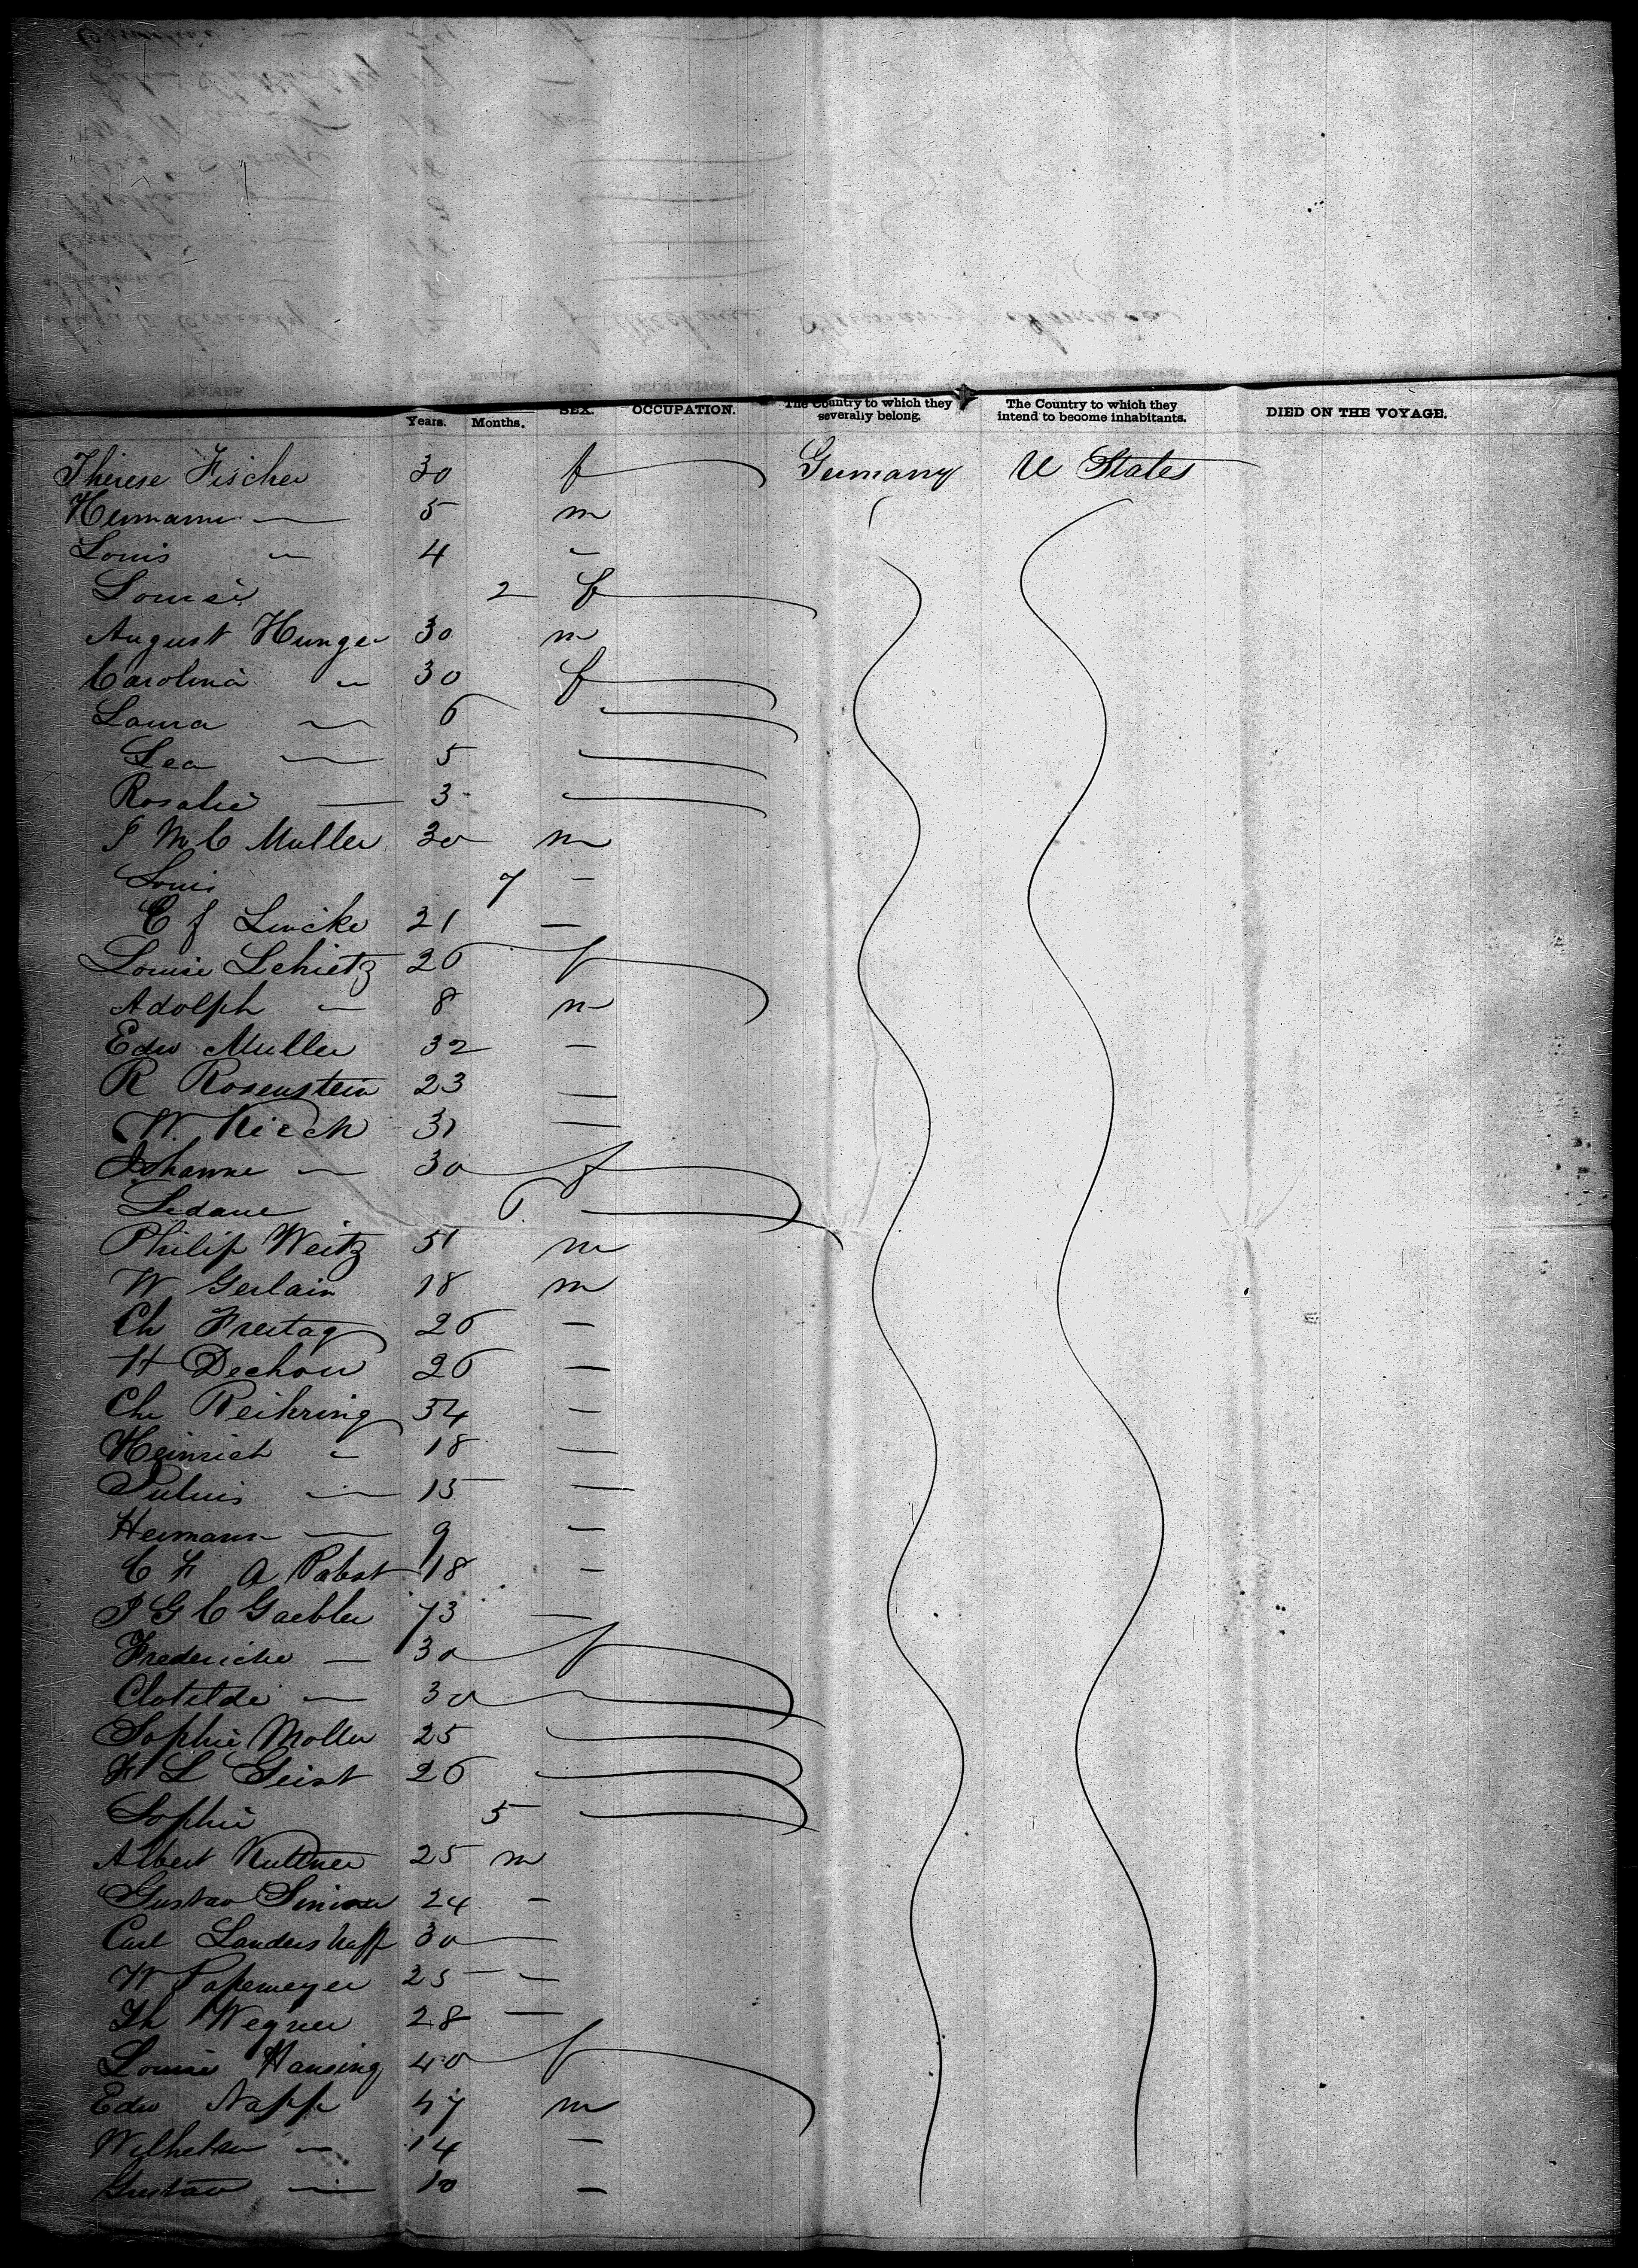 Years. Months. SEX. OCCUPATION. The Country to which they severally belong. The Country to which they intend to become inhabitants. DIED ON THE VOYAGE.
Therese Fischer 30 f Germany U States
Hermann — 5 m
Louis " 4 "
Louise 2 f
August Hunger 30 m
Carolina " 30 f
Laura — 6
Lea — 5
Rosalie — 3
J M C Muller 30 m
Louis 7 —
C F Lincke 21 —
Louise Schietz 26 f
Adolph — 8 m
Edw Muller 32 —
R Rosenstein 23 —
W. Kirch 31 —
Johanne — 30 f
6
Philip Weitz 51 m
W Gerlain 18 m
Ch Freitag 26 —
H Dechow 26 —
Ch Reihring 54 —
Heinrich " 18 —
Julius — 15 —
Hermann — 9 —
C F A Pabst 18 —
J G C Gaebler 73 —
Fredericke — 30 f
Clotilde — 30
Sophie Moller 25
F L Geist 26
Sophie 5
Albert Kuttner 25 m
Gustav 24 —
Carl Landershaff 30 —
W Papemeyer 25 —
Th Wegner 28 —
Louise Hansing 40 f
Edw Napp 47 m
Wilhelm " 14 —
Gustav — 10 —